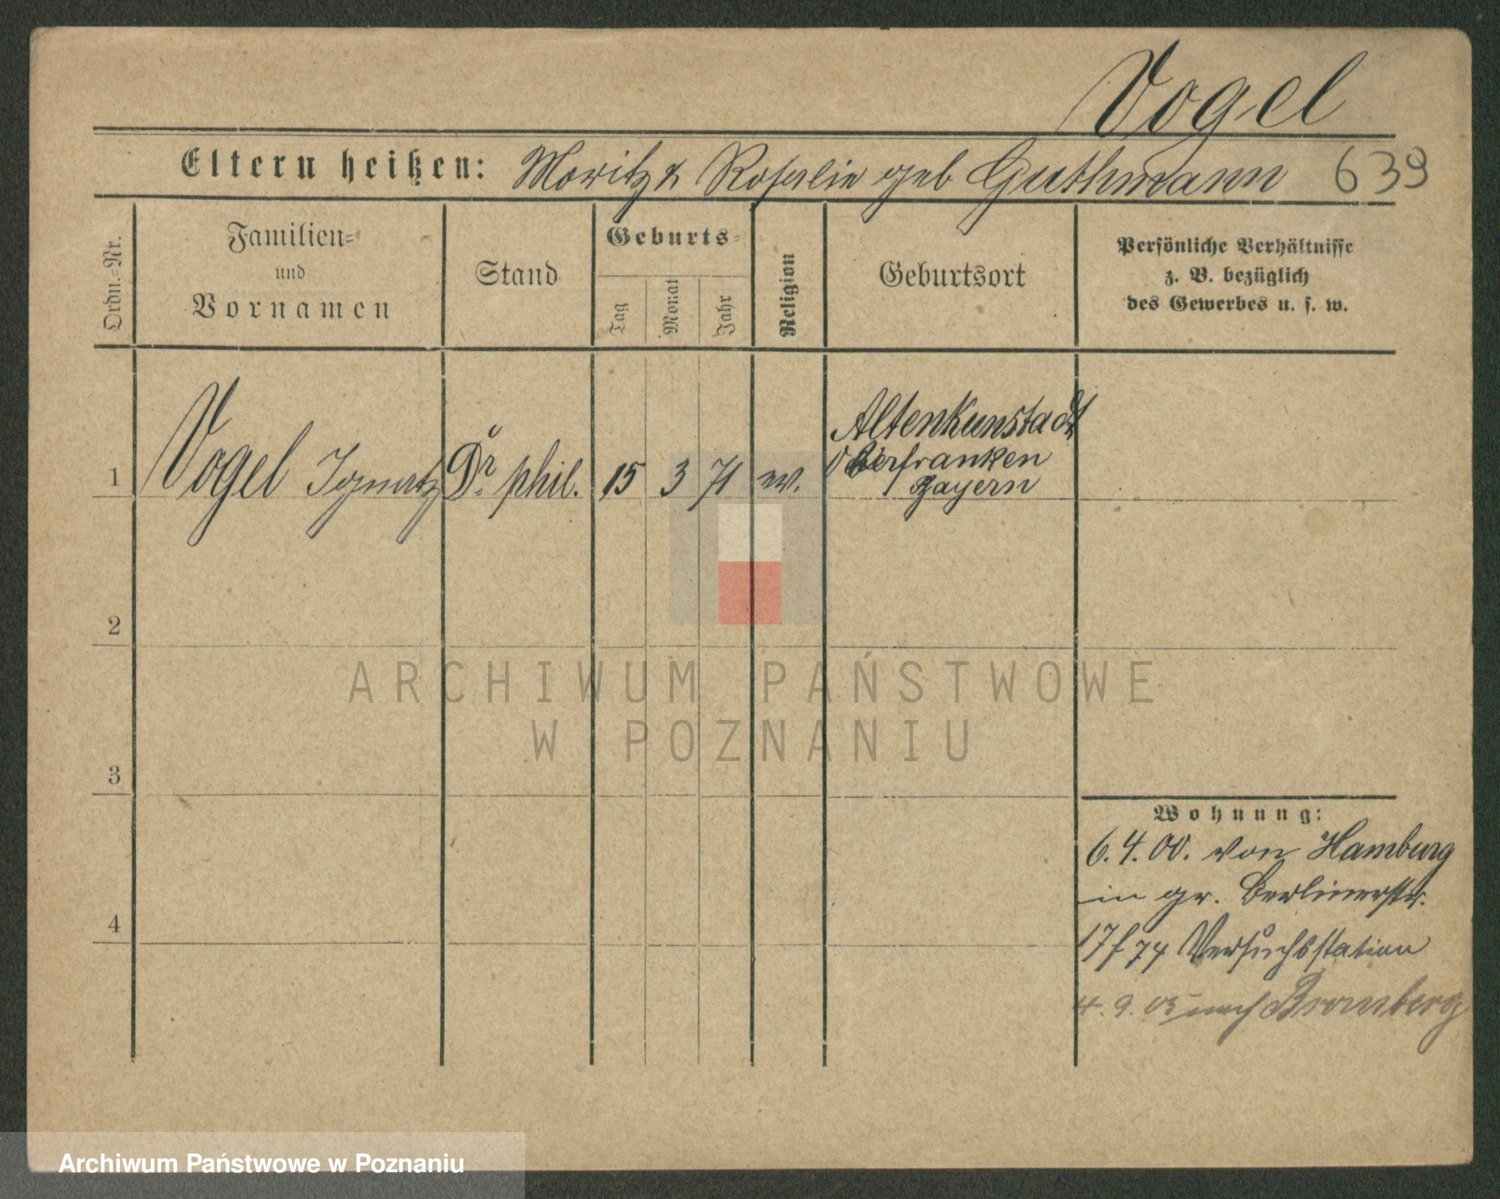 Vogel
Eltern heißen: Moritz & Rosalie geb Guthmann 639
Ordn.-Nr.
Familien-
und
Vornamen
Stand
Geburts-
Tag
Monat
Jahr
Religion
Geburtsort
Persönliche Verhältnisse
z. B. bezüglich
des Gewerbes u. s. w.
1 Vogel Ignatz Dr. phil. 15 3 71
Altenkunstadt
Oberfranken
Bayern
2
3
4
Wohnung:
6. 4. 00. von Hamburg
in gr. Berlinerstr.
Versuchsstation
4. 9. 03 nach Bromberg
ARCHIWUM PAŃSTWOWE
W POZNANIU
Archiwum Państwowe w Poznaniu